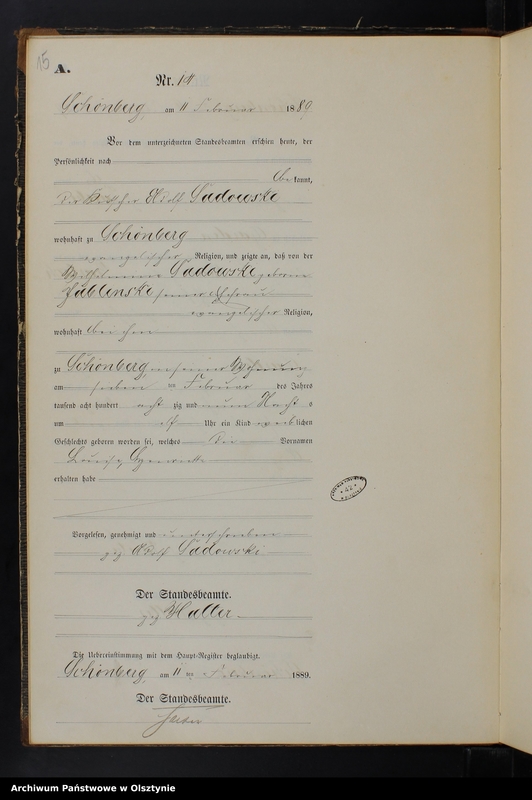 15
A.
Nr. 14
Schönberg, am 11 Februar 1889
Vor dem unterzeichneten Standesbeamten erschien heute, der
Persönlichkeit nach
kannt,
der Kutscher Adolf Sadowski
wohnhaft zu Schönberg
evangelischer Religion, und zeigte an, daß von der
Wilhelmine Sadowski geborene
Jablonski seiner Ehefrau
evangelischer Religion,
wohnhaft bei ihm
zu Schönberg in seiner Wohnung
am sieben ten Februar des Jahres
tausend acht hundert acht zig und neun Nachts
um Uhr ein Kind weiblichen
Geschlechts geboren worden sei, welches die Vornamen
Louise
erhalten habe
Vorgelesen, genehmigt und unterschrieben
gez Adolf Sadowski
Der Standesbeamte.
gez Halter
Die Uebereinstimmung mit dem Haupt-Register beglaubigt.
Schönberg, am 11 ten Februar 1889.
Der Standesbeamte.
Archiwum Państwowe w Olsztynie